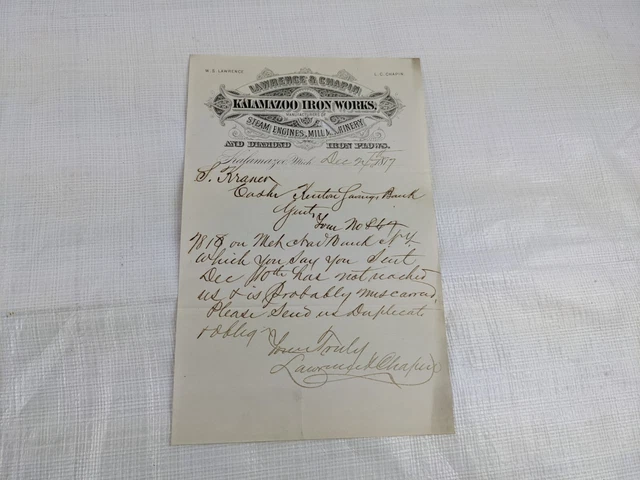 W. S. LAWRENCE L. C. CHAPIN
LAWRENCE & CHAPIN
KALAMAZOO IRON WORKS,
MANUFACTURERS OF
STEAM ENGINES, MILL MACHINERY
AND DIAMOND IRON PLOWS.
Kalamazoo Mich Dec
S.
Cash Savings Bank
Gents
Your No
on Met Nat Bank N.Y.
which You Say You Sent
Dec 10th has not reached
us & is Probably miscarried
Please Send us Duplicate
& oblige
Yours Truly
Lawrence & Chapin